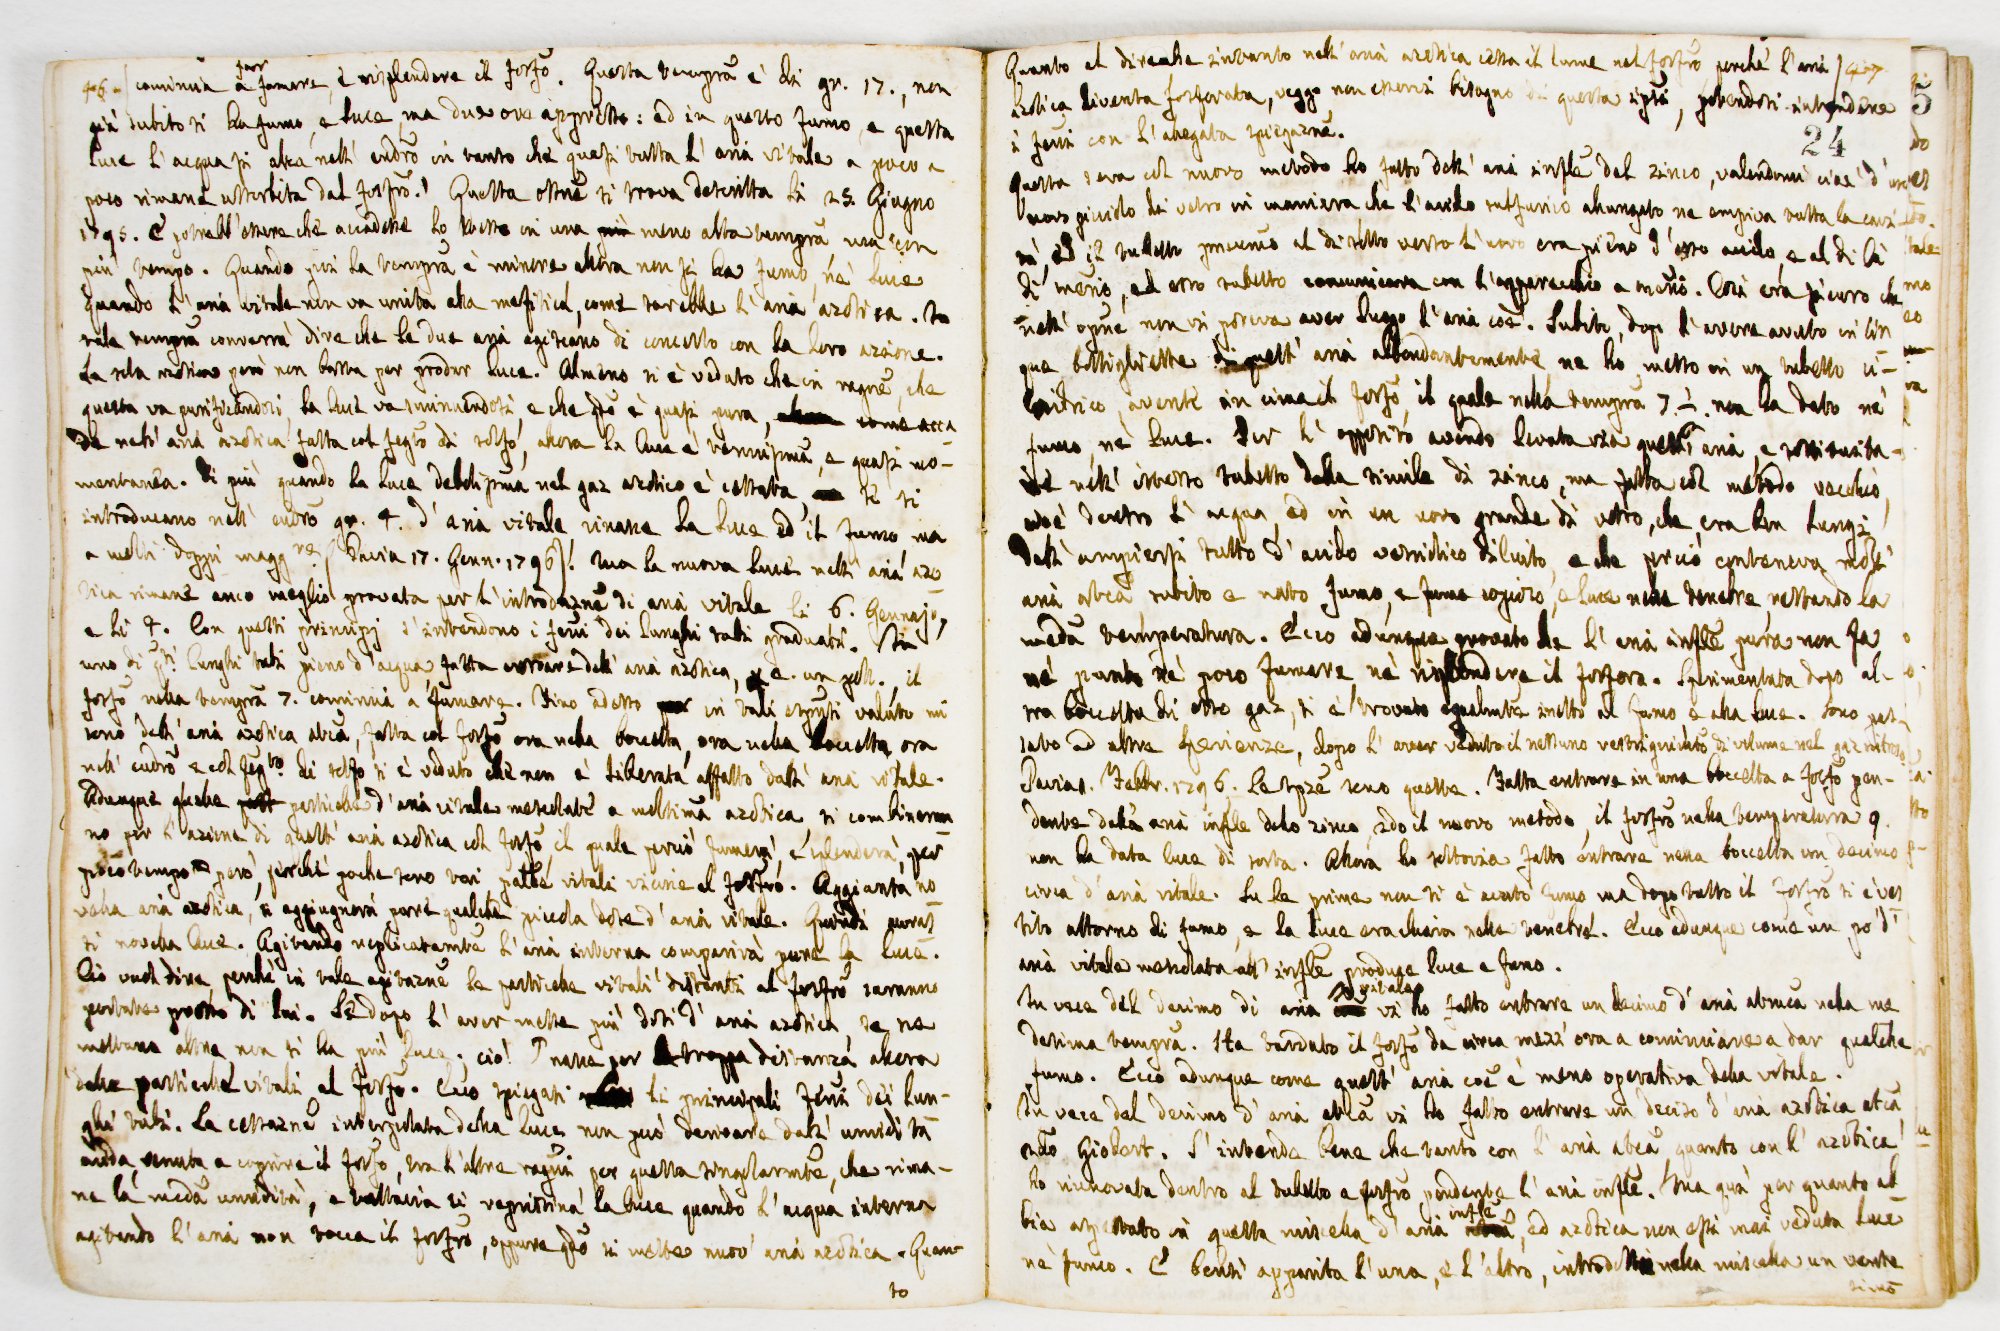 46. comincia a far fumare, e risplendere il fosfō. Questa temprā è di gr. 17., non
già subito si ha fumo, e luce, ma due ore appresso: ed in questo fumo, e questa
luce l'acqua si alza nell' eudrō in tanto che quasi tutta l'aria vitale a poco a
poco rimane assorbita dal fosfrō. Questa ossnē si trova descritta li 25. Giugno
1795. E potrebb' essere che accadesse lo stesso in una meno alta temprā ma con
più tempo. Quando poi la temprā è minore allora non si ha fumo, nè luce
quando l'aria vitale non va unita alla mefitica, come sarebbe l'aria azotica. In
tale temprā converrà dire che le due arie agiscano di concerto con la loro azione.
La sola azotica però non basta per produr luce. Almeno si è veduto che in ragnē, che
questa va purificandosi, la luce va sminuendosi, e che qdō è quasi pura, come acca
de nell' aria azotica fatta col fegtō di solfō, allora la luce è tenuissimā, e quasi mo-
mentanea. Di più quando la luce debolissima nel gaz azotico è cessata, se si
introducano nell' eudrō gr. 4. d'aria vitale, rinasce la luce ed il fumo ma
a molti doppi magg.re (Pavia 17. Genn. 1796)! Ma la nuova luce nell' aria azo
tica rimane anco meglio provata per l'introduznē di aria vitale li 6. Gennajo,
e li 4. Con questi principj s'intendono i fenni dei lunghi tubi graduati. In
uno di qti lunghi tubi pieno d'acqua, fatta entrare dell' aria azotica, p. e. un poll., il
fosfō nella temprā 7. comincia a fumare. Fino adesso in tali esprnti valuto mi
sono dell' aria azotica atcā, fatta col fosfō ora nella boccetta, ora nella boccetta, ora
nell' eudrō e col fegto di solfo si è veduto che non è liberata affatto dall' aria vitale.
Adunque queste particelle d'aria vitale mescolate a moltissimā azotica si combineran
no per l'azione di quest' aria azotica col fosfō il quale perciò fumerà, e splenderà, per
poco tempo però, perchè poche sono tai particē vitali vicine al fosfrō. Aggiunta no
vella aria azotica, si aggiugnerà pure qualche piccola dose d'aria vitale. Quindi avrassi
novella luce. Agitando replicatamtē l'aria interna comparirà pure la luce.
Ciò vuol dire, perchè in tale agitaznē le particelle vitali distanti al fosfrō saranno
portate presso di lui. Se dopo l'aver messe più dosi d'aria azotica, se ne
mettano altre non si ha più luce, ciò nasce per troppa distanza allora
delle particelle vitali al fosfō. Ecco spiegati li principali fenni dei lun-
ghi tubi. La cessaznē interpolata della luce non può derivare dall' umidità
acida venuta a coprire il fosfō, tra l'altre ragni per questa singolarmtē, che rima-
ne la medā umidità, e tuttavia si ripristina la luce quando l'acqua interna
agitando l'aria non tocca il fosfrō, oppure qdō si mette nuov' aria azotica. Quan-
to
Quanto al dire che intanto nell' aria azotica cessa il lume nel fosfrō perchè l'aria 47
azotica diventa fosforata, veggo non esservi bisogno di questa ipsi, potendosi intendere
i fenni con l'allegata spiegaznē.
24
Questa sera col nuovo metodo ho fatto dell' aria inflē dal zinco, valendomi cioè d'un
uovo piccolo di vetro in maniera che l'acido sulfurico allungato ne empiva tutta la cavi-
tà, ed il tubetto prossimo al di sotto verso l'uovo era pieno d'esso acido, e al di là
di merīo, ed esso tubetto comunicava con l'apparecchio a merīo. Così era sicuro che
nell' opnē non vi poteva aver luogo l'aria coē. Subito, dopo l'avere avuto in cin
que bottigliette di quest' aria abbondantemente ne ho messo in un tubetto ci-
lindrico, avente in cima il fosfō, il quale nella temprā 7. ½. non ha dato nè
fumo, nè luce. Per l'opposito avendo levata via quest' aria, e sostituita-
ne nell' istesso tubetto della simile di zinco, ma fatta col metodo vecchio,
cioè dentro l'acqua, ed in un uovo grande di vetro, che era ben lungi
dall' empiersi tutto d'acido vetriolico diluito, e che perciò conteneva molt'
aria atcā, subito e nato fumo, e fumo copioso, e luce nelle tenebre restando la
medā temperatura. Ecco adunque provato che l'aria inflē pura non fa
nè punto nè poco fumare nè risplendere il fosforo. Sperimentata dopo al-
tra boccetta di esso gaz, si è trovato egualmte inetto al fumo e alla luce. Sono pas-
sato ad altre sperienze, dopo l'aver veduto il nessuno restrigniito di volume nel gaz nitroso
Pavia 1. Febbr. 1796. Le spzē sono queste. Fatta entrare in una boccetta a fosfrō pen-
dente della aria inflē dello zinco, sdo il nuovo metodo, il fosfrō nella temperatura 9.
non ha data luce di sorta. Allora ho tuttavia fatto entrare nella boccetta un decimo
circa d'aria vitale. Su le prime non si è avuto fumo ma dopo tutto il fosfrō si è ves
tito attorno di fumo, e la luce era chiara nelle tenebre. Ecco adunque come un po' d'
aria vitale mescolata all' inflē produce luce e fumo.
In vece del decimo di aria vitale vi ho fatto entrare un decimo d'aria atmca nella me
desima temprā. Sta tardato il fosfō da circa mezz' ora a cominciare a dar qualche
fumo. Ecco adunque come quest' aria coē è meno operativa della vitale.
In vece del decimo d'aria atcā vi ho fatto entrare un decimo d'aria azotica atcā
sdō Giobert. S'intende bene che tanto con l'aria atcā quanto con l'azotica
ho rinnovata dentro al tubetto a fosfrō pendente l'aria inflē. Ma quà per quanto ab
bia aspettato in questa miscella d'aria inflē, ed azotica non essi mai veduta luce
nè fumo. È bensì apparita l'una, e l'altro, introdotta nella miscella un vente
simo